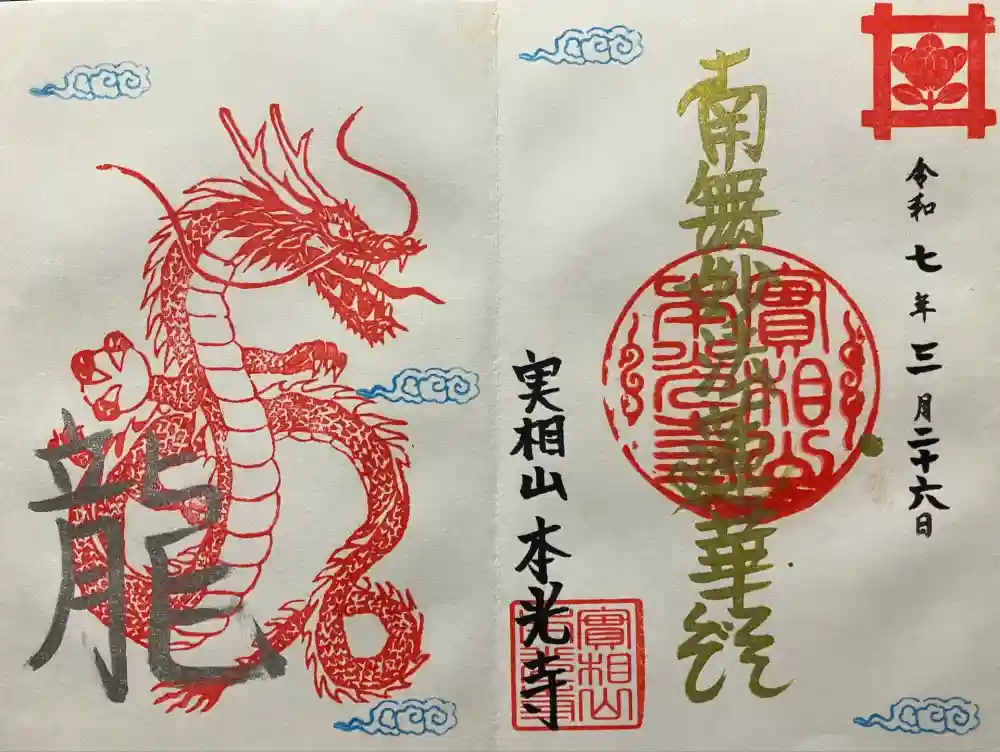 令和七年三月二十六日
南無妙法蓮華経
實相山
本光寺
実相山本光寺
實相山
本光寺
龍